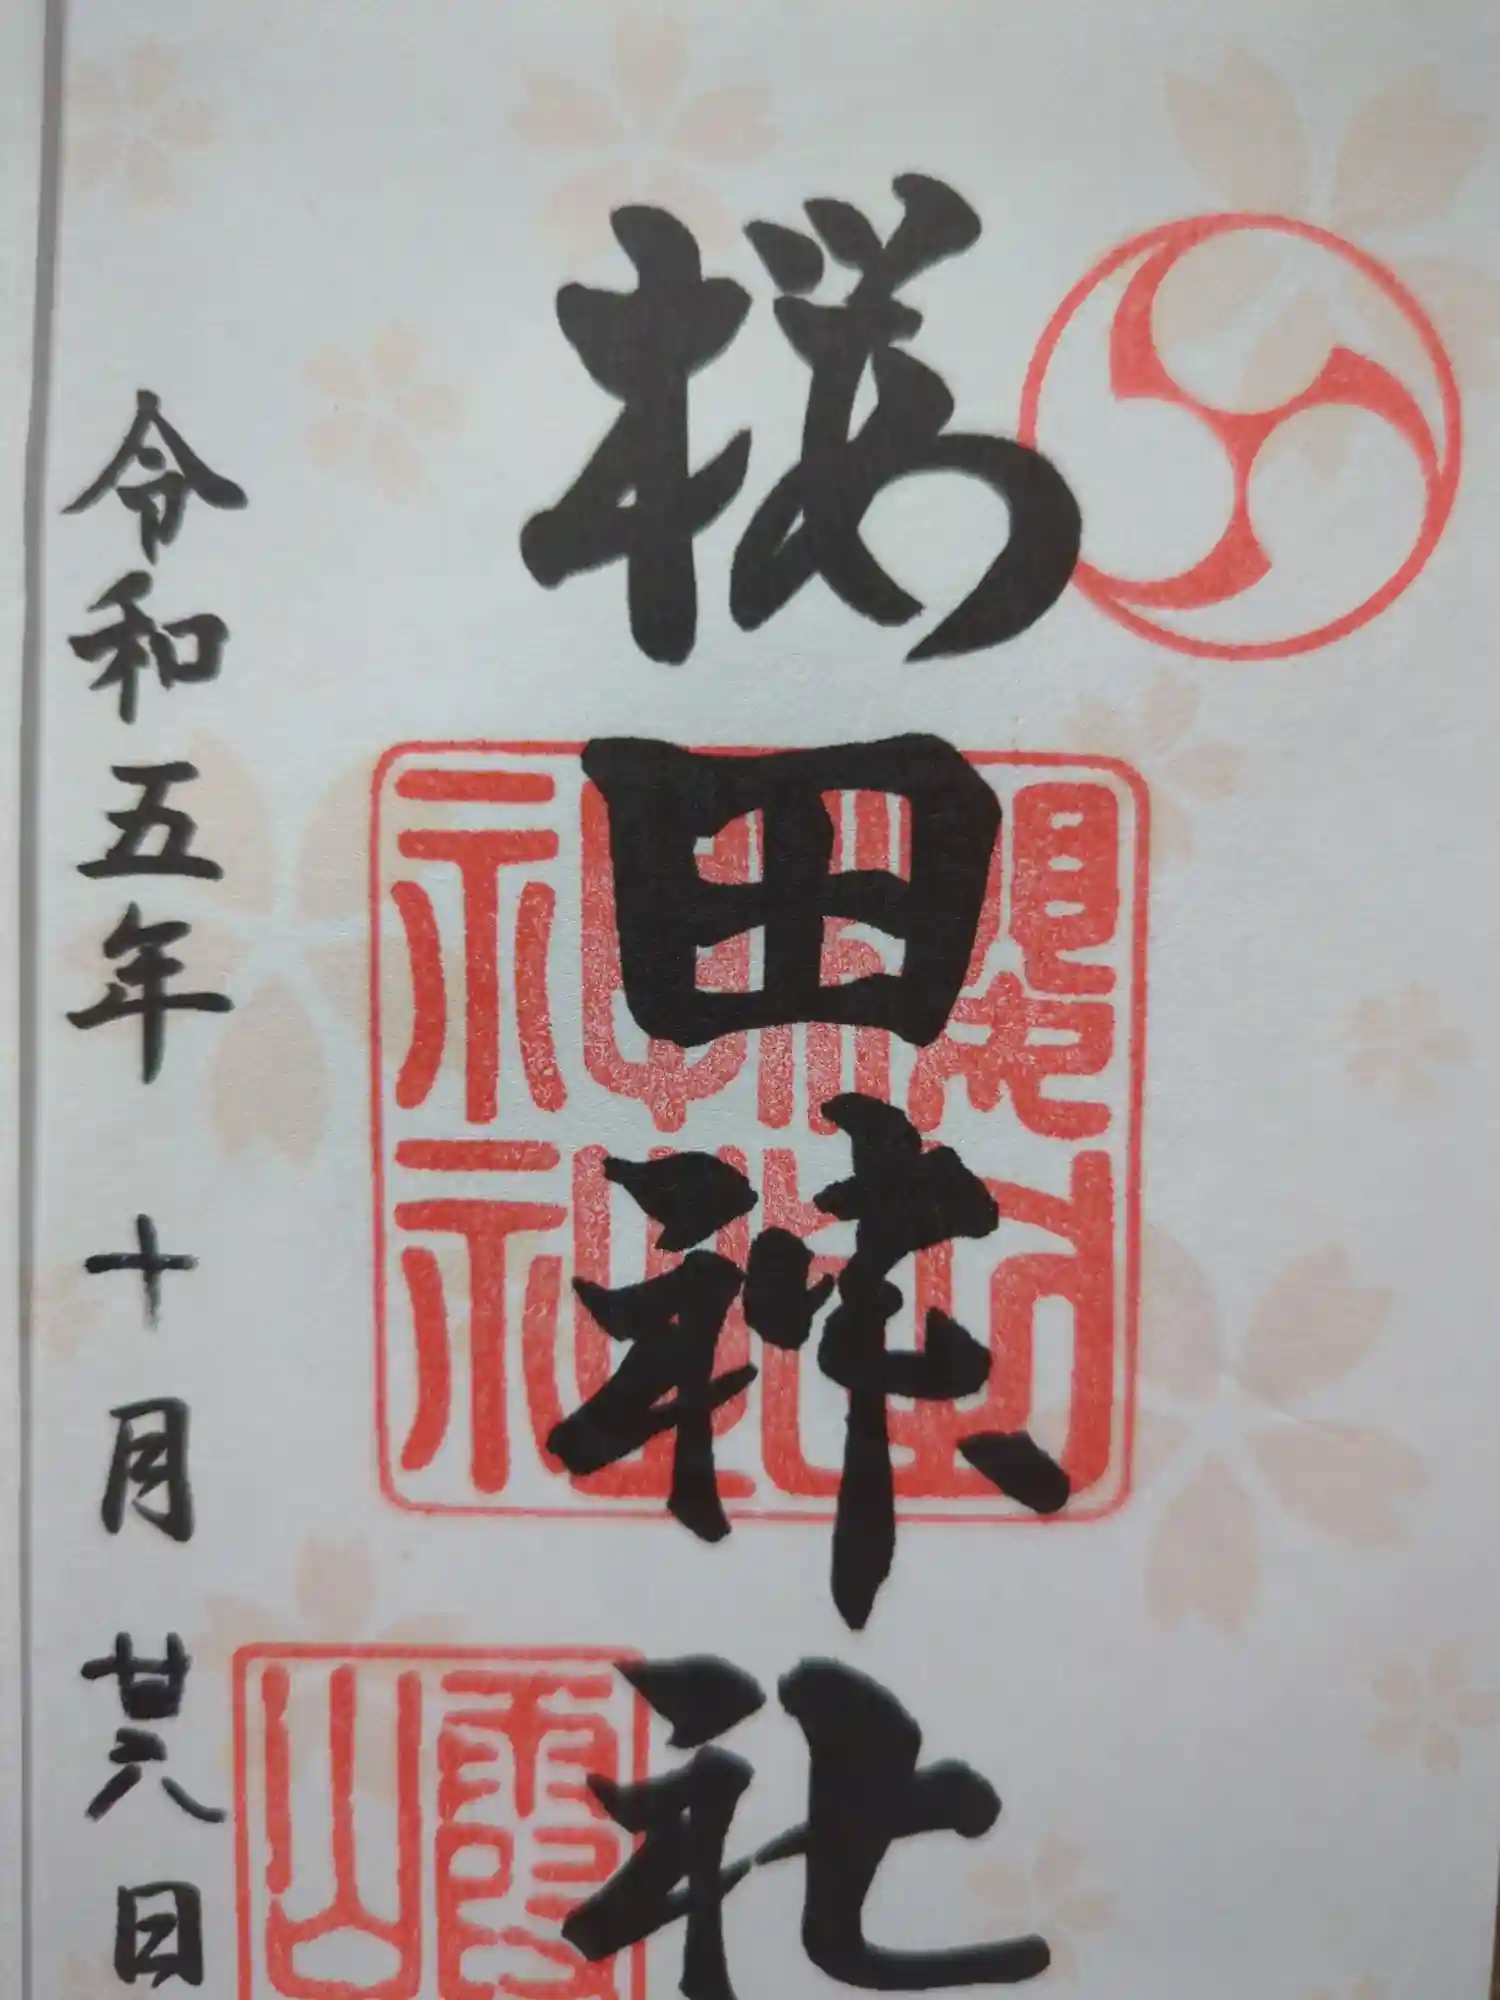 桜田神社
令和五年 十月 廿六日